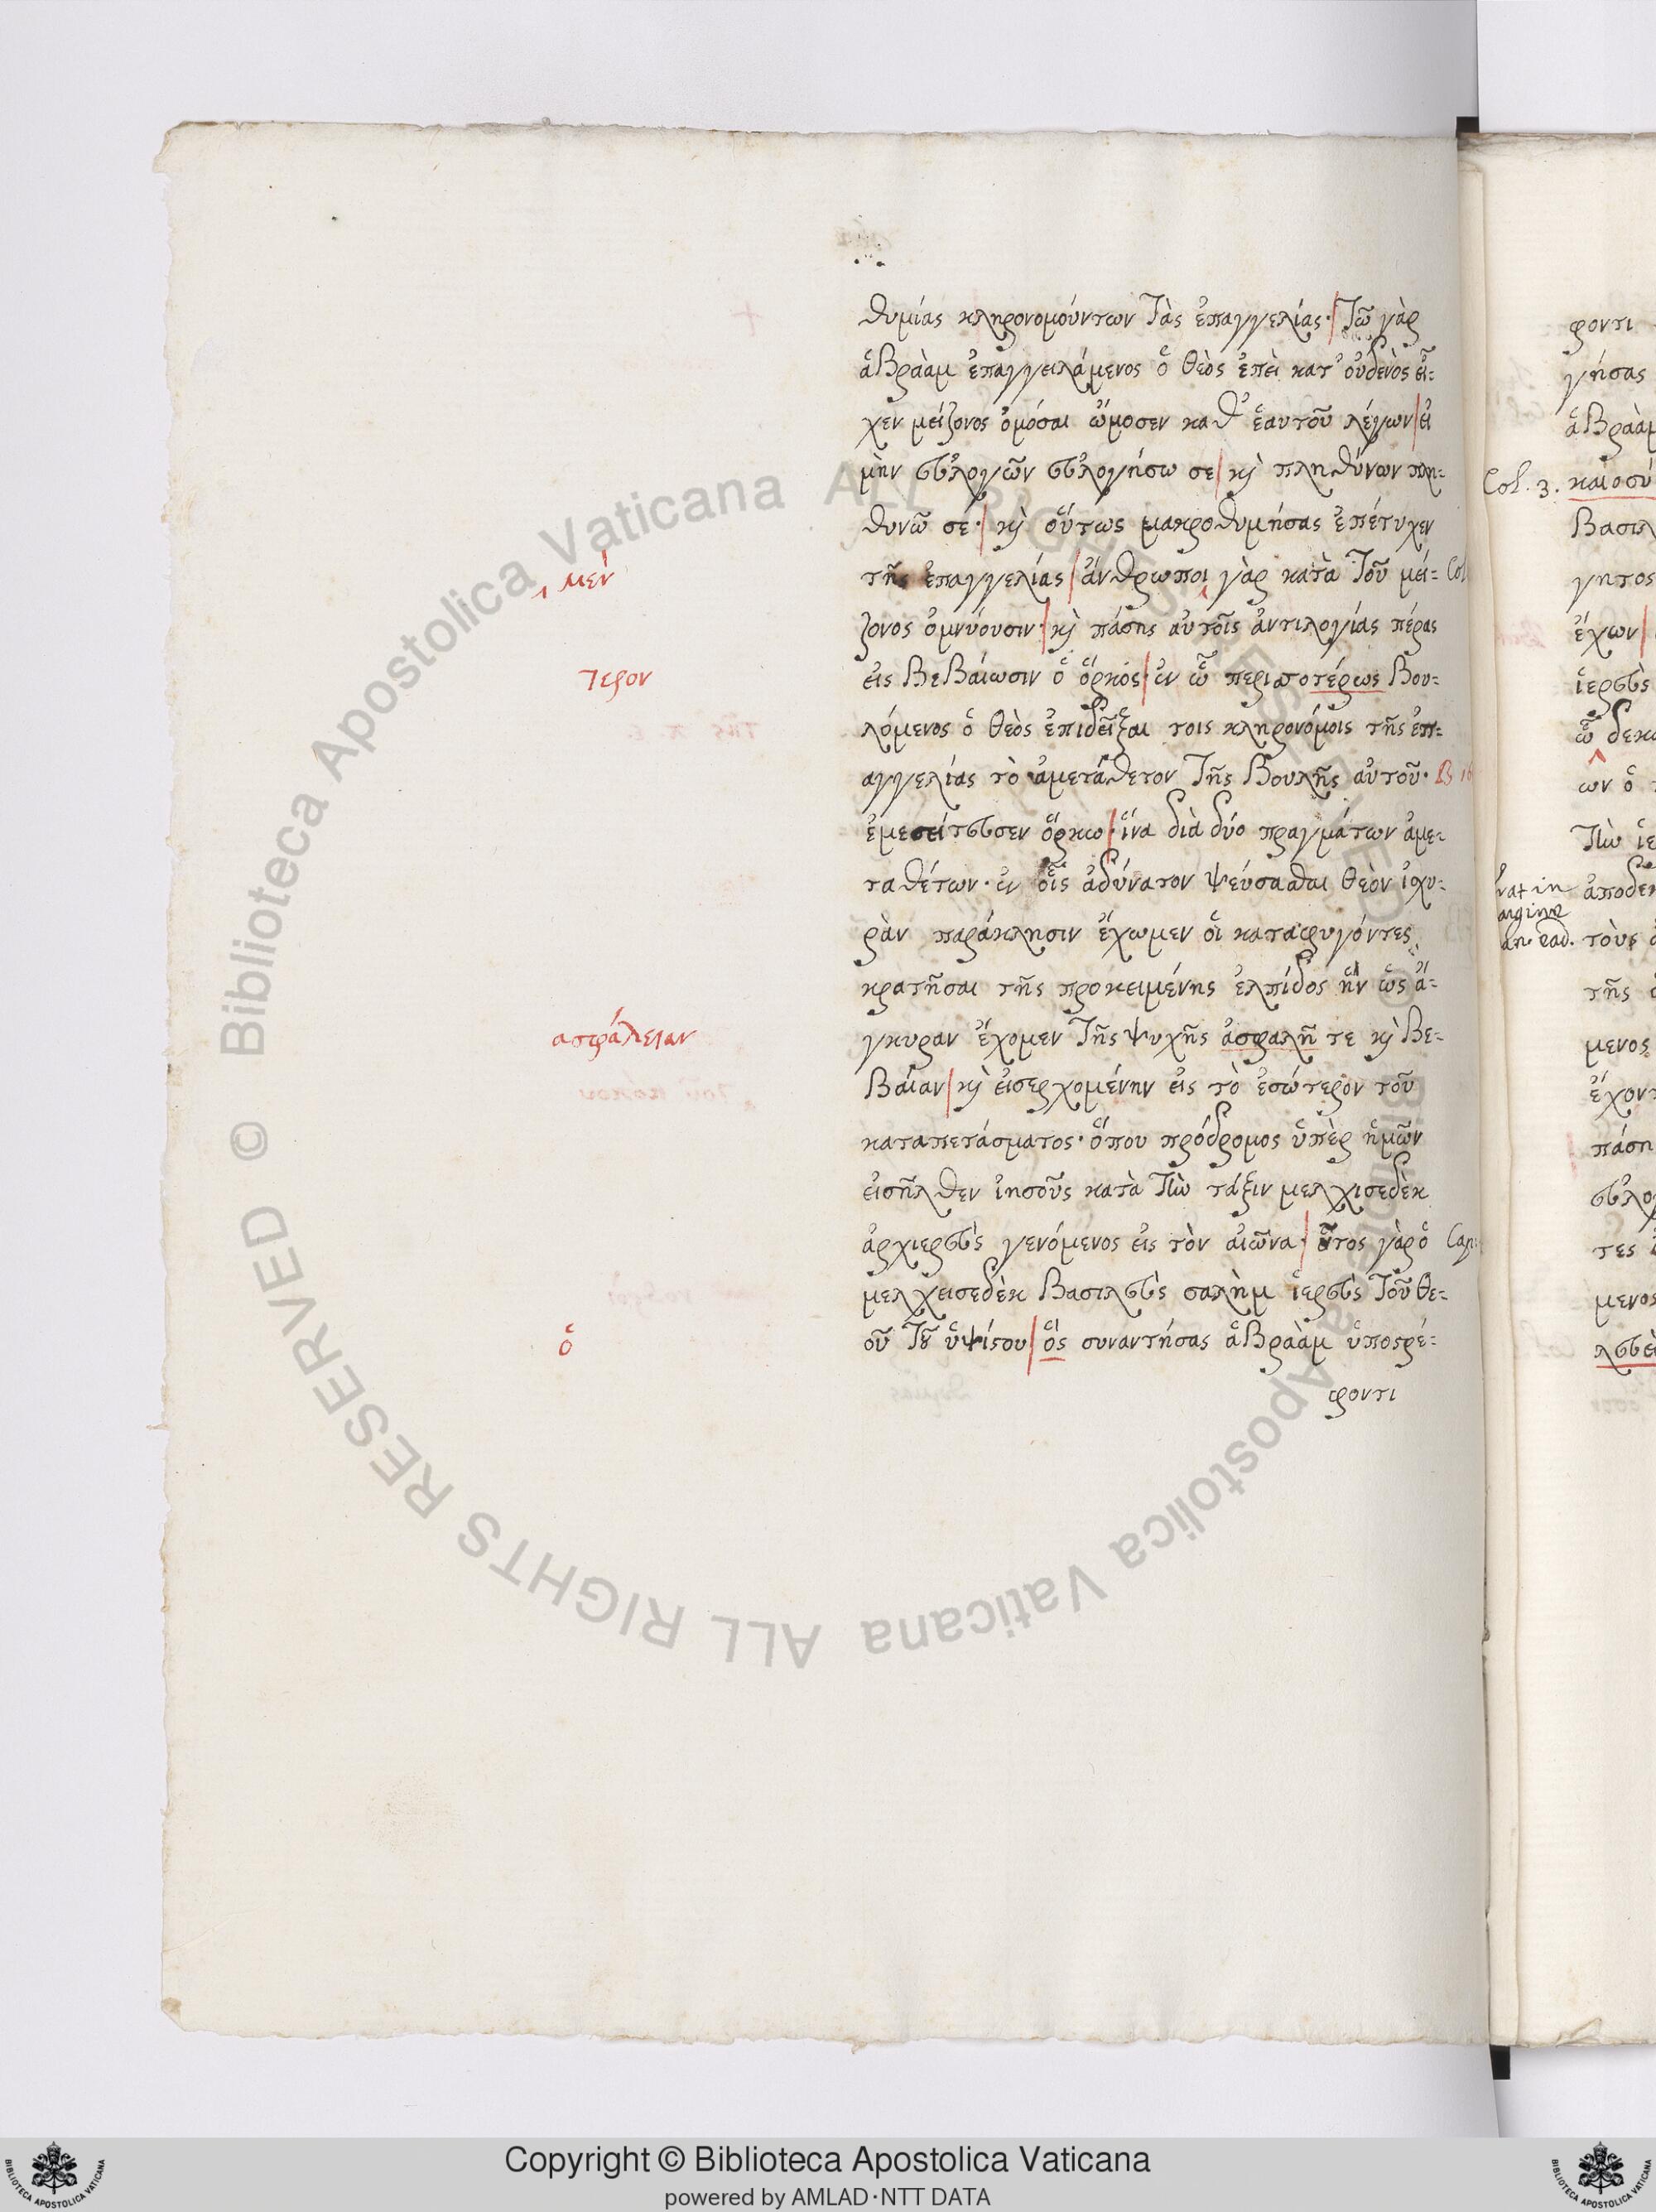 θυμίας κληρονομούντων τὰς ἐπαγγελίας· τῶ γὰρ
ἀβραὰμ ἐπαγγειλάμενος ὁ θεὸς ἐπεὶ κατ' οὐδενὸς εἶ-
χεν μείζονος ὀμόσαι ὤμοσεν καθ' ἑαυτοῦ λέγων εἰ
μὴν εὐλογῶν εὐλογήσω σε κὶ πληθύνων πλη-
θυνῶ σέ· κὶ οὕτως μακροθυμήσας ἐπέτυχεν
μὲν
τῆς ἐπαγγελίας ἄνθρωποι γὰρ κατὰ τοῦ μεί-
ζονος ὀμνύουσιν· κὶ πάσης αὐτοῖς ἀντιλογίας πέρας
τερον
εἰς βεβαίωσιν ὁ ὅρκος ἐν ᾧ περισσοτέρως βου-
λόμενος ὁ θεὸς ἐπιδεῖξαι τοις κληρονόμοις τῆς ἐπ-
αγγελίας τὸ ἀμετάθετον τῆς βουλῆς αὐτοῦ·
ἐμεσείτευσεν ὅρκω· ἵνα διὰ δύο πραγμάτων ἀμε-
ταθέτων· ἐν οἷς ἀδύνατον ψεύσασθαι θεὸν ἰσχυ-
ρὰν παράκλησιν ἔχωμεν οἱ καταφυγόντες
κρατῆσαι τῆς προκειμένης ἐλπίδος ἣν ὡς ἄ-
ασφάλειαν
γκυραν ἔχομεν τῆς ψυχῆς ἀσφαλῆ τε κὶ βε-
βαίαν κὶ εἰσερχομένην εἰς τὸ ἐσώτερον τοῦ
καταπετάσματος· ὅπου πρόδρομος ὑπὲρ ἡμῶν
εἰσῆλθεν ἰησοῦς κατὰ τὴν τάξιν μελχισεδὲκ
ἀρχιερεὺς γενόμενος εἰς τὸν αἰῶνα· οὗτος γὰρ ὁ
μελχεισεδὲκ βασιλεὺς σαλὴμ ἱερεὺς τοῦ θε-
ὁ
οῦ τοῦ ὑψίστου ὅς συναντήσας ἀβραὰμ ὑποστρέ-
φοντι
φοντι
γήσας
ἀβραὰμ
Col. 3. καὶ οσύ
βασιλ
γητος
ἔχων
ἱερεὺς
ᾧ δεκ
ων ὁ
τὴν ἱε
ἀποδεκ
τοὺς
τῆς
μενος
ἔχοντ
πάση
εὐλο
τες
μενος
λευεὶ
Copyright © Biblioteca Apostolica Vaticana
powered by AMLAD·NTT DATA
© Biblioteca Apostolica Vaticana ALL RIGHTS RESERVED